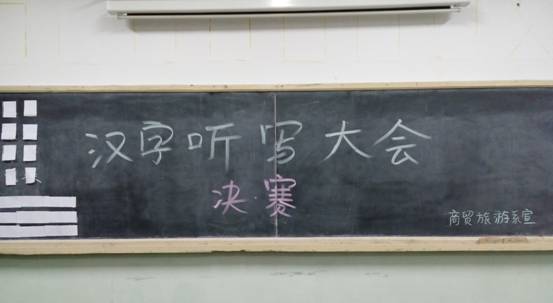 汉字听写大会
决赛
商贸旅游系宣